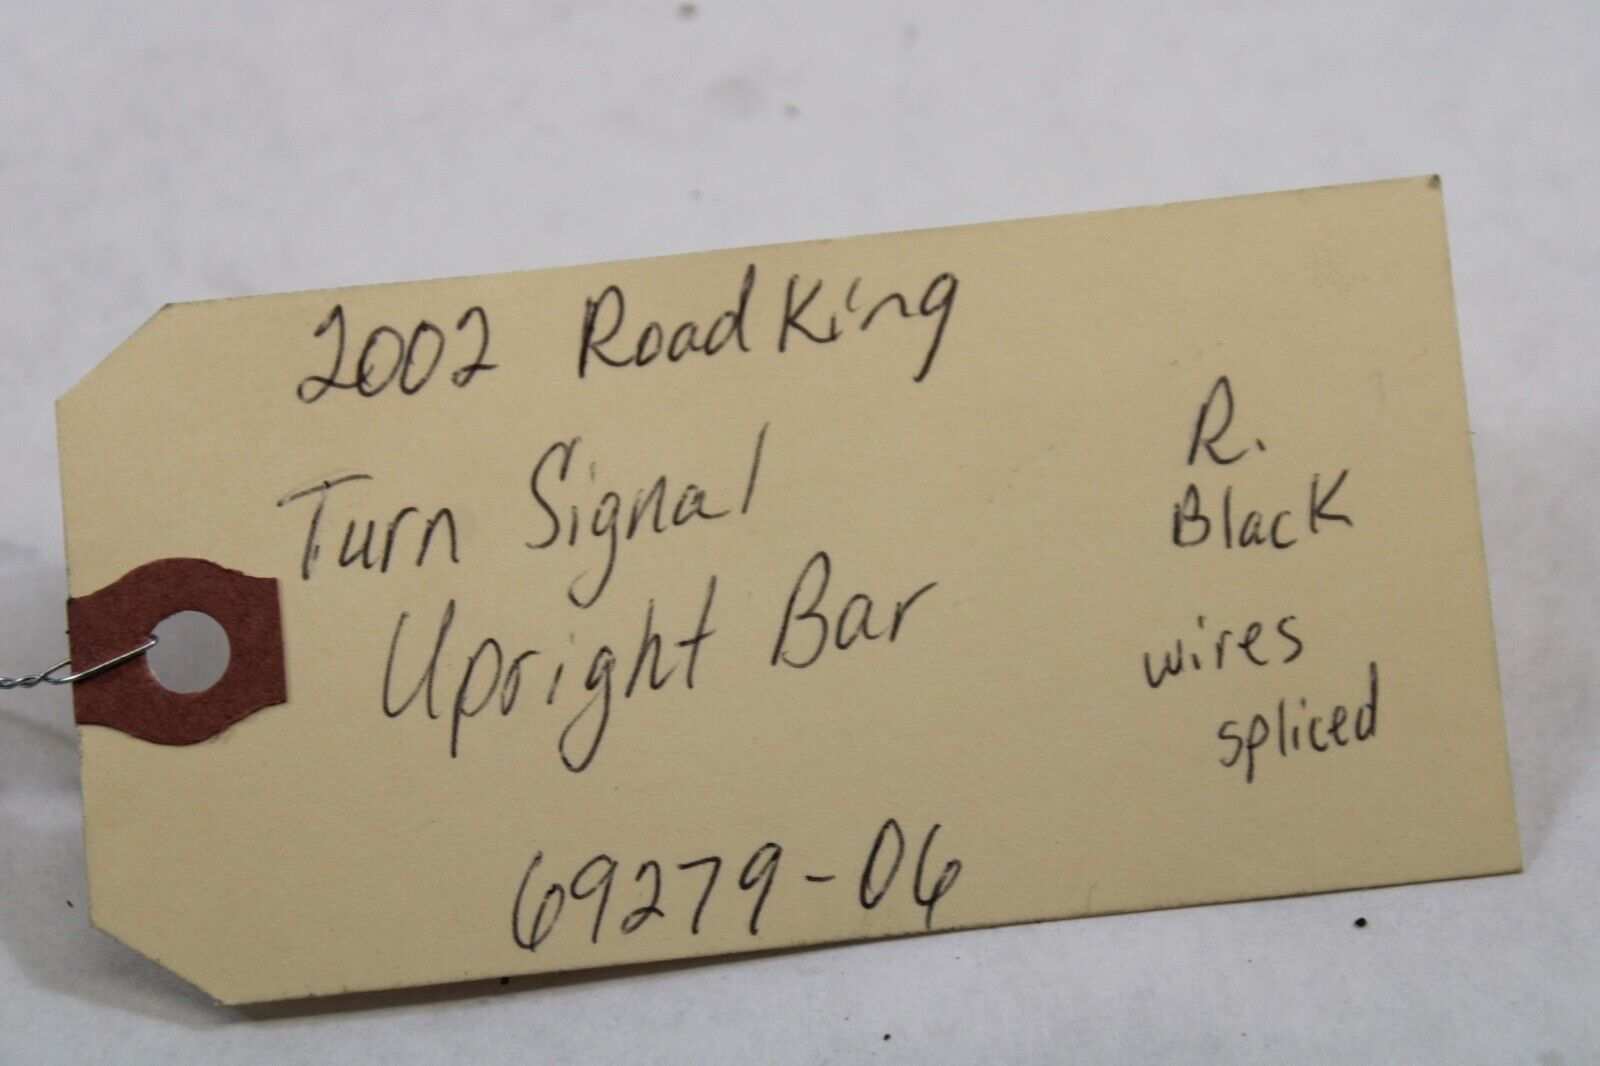 2002 Road King
Turn Signal
Upright Bar
69279-06
R.
Black
wires
spliced